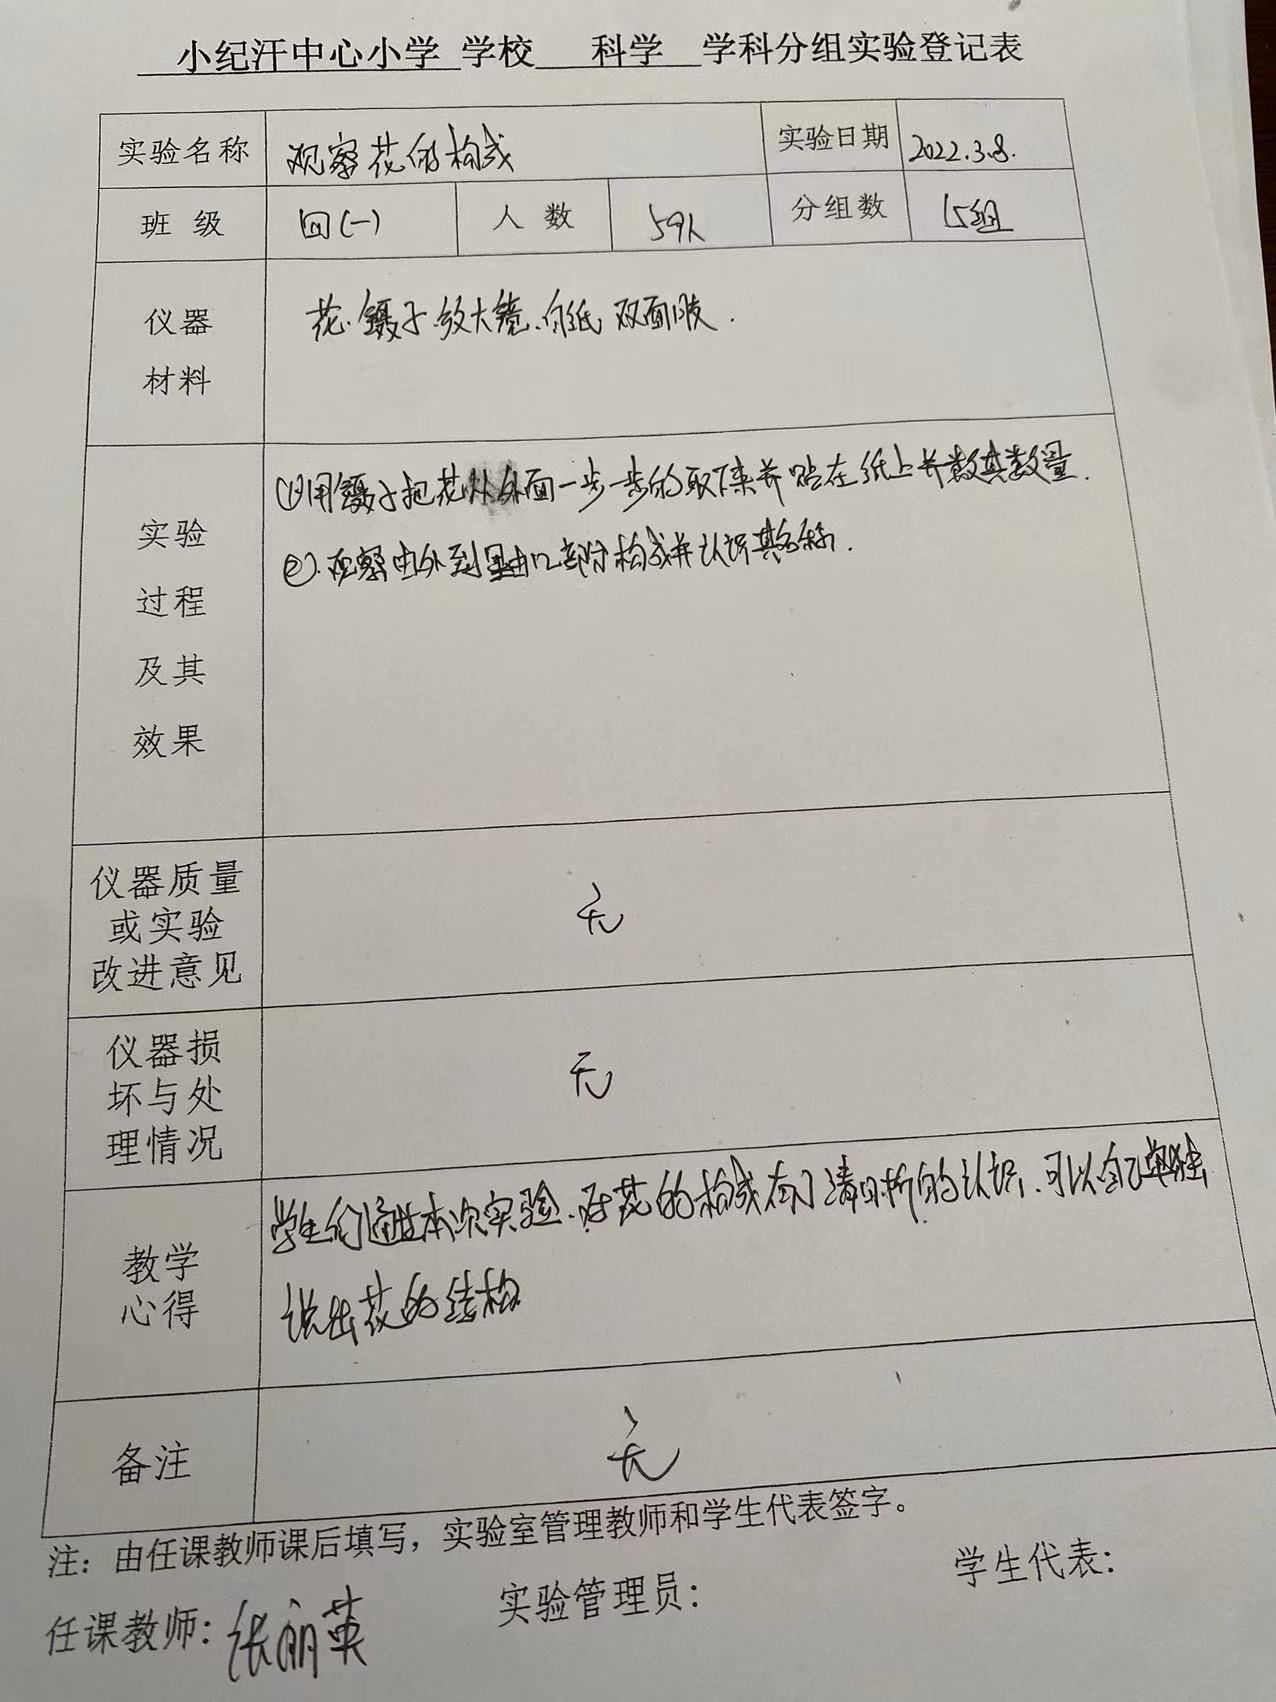 小纪汗中心小学 学校 科学 学科分组实验登记表
实验名称 观察花的构成 实验日期 2022.3.8.
班 级 四(一) 人 数 59人 分组数 15组
仪器
材料
花.镊子.放大镜.白纸.双面胶.
实验
过程
及其
效果
①用镊子把花从外面一步一步的取下来并贴在纸上并数其数量.
②.观察由外到里由几部分构成并认识其名称.
仪器质量
或实验
改进意见
无
仪器损
坏与处
理情况
无
教学
心得
学生们通过本次实验.对花的构成有了清晰的认识.可以自己单独
说出花的结构
备注
无
注：由任课教师课后填写，实验室管理教师和学生代表签字。
任课教师：张丽英 实验管理员： 学生代表：